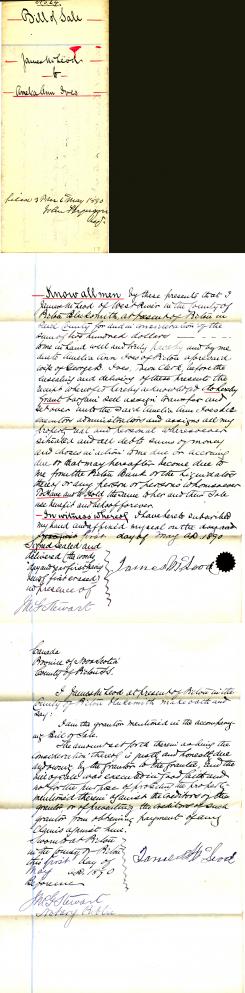 Bill of Sale
James McLeod
to
Amelia Ann Ives
Know all men By these presents that I
James McLeod of West River in the County of
Pictou Blacksmith at present of Pictou in
said County for and in consideration of the
sum of two hundred dollars
to me in hand well and truly by me
due to Amelia Ann Ives of Pictou aforesaid
wife of George D. Ives Town Clerk before the
ensealing and delivery of these presents the
receipt whereof I hereby acknowledge do hereby
Grant bargain sell assign transfer and
set over unto the said Amelia Ann Ives her
executors administrators and assigns all my
real and personal
situated and all debts sums of money
and choses in action to me due or accruing
due or that may hereafter become due to
me from the Pictou Bank or the liquidators
thereof or any person or persons whomsoever
To Have and to Hold the same to her and their sole
use benefit and behoof forever
In witness whereof I have hereto subscribed
my hand and affixed my seal on the day and
first day of May AD 1890
Signed Sealed and
delivered (the words
day and year first being
first erased)
in presence of
James McLeod
J McG Stewart
Canada
Province of Nova Scotia
County of Pictou SS.
I James McLeod at present of Pictou in the
County of Pictou Blacksmith make oath and
say:
I am the grantor mentioned in the accompany-
ing Bill of Sale.
The amount set forth therein as being the
consideration thereof is justly and honestly due
and owing by the grantor to the grantee, and the
bill of sale was executed in good faith and
not for the purpose of protecting the property
mentioned therein against the creditors of the
grantor or of preventing the creditors of such
grantor from obtaining payment of any
claims against him.
Sworn to at Pictou
in the County of Pictou
this first day of
May A.D. 1890
Before me
James McLeod
J McG Stewart
Notary Public